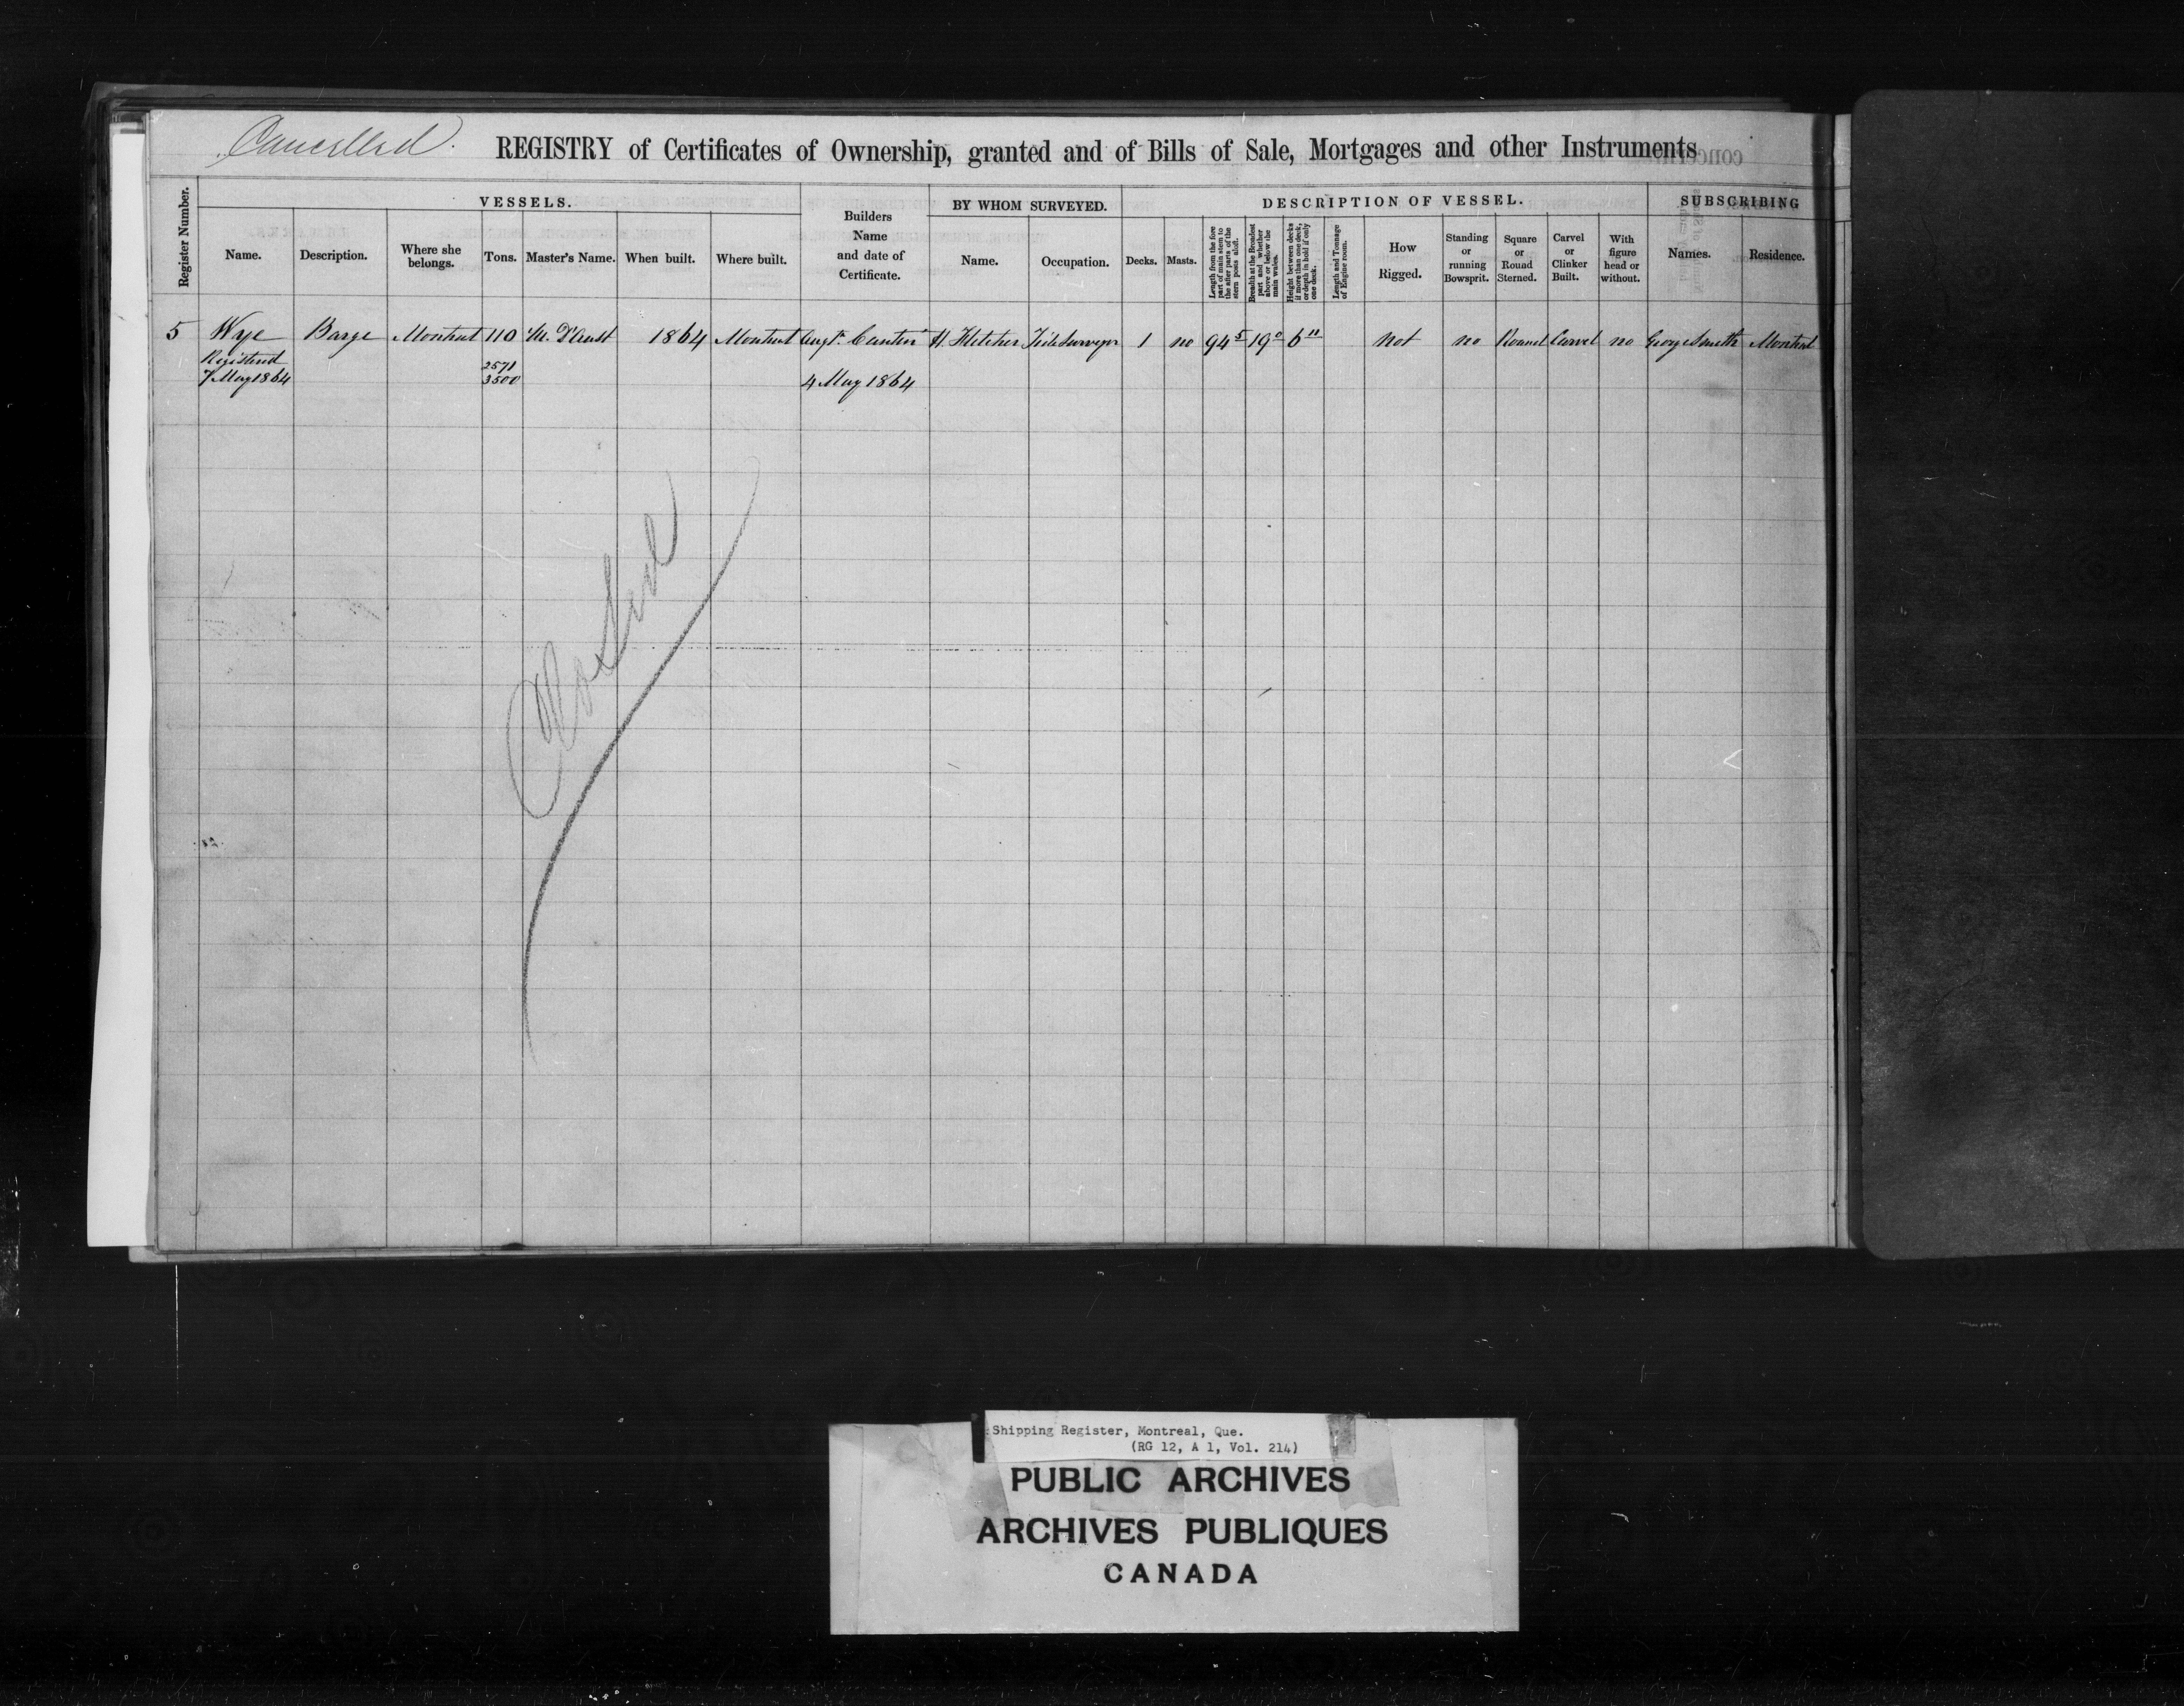 Cancelled.
REGISTRY of Certificates of Ownership, granted and of Bills of Sale, Mortgages and other Instruments
Register Number.
VESSELS.
Name.
Description.
Where she belongs.
Tons.
Master's Name.
When built.
Where built.
Builders Name and date of Certificate.
BY WHOM SURVEYED.
Name.
Occupation.
DESCRIPTION OF VESSEL.
Decks.
Masts.
Length from the fore part of main stem to the after parts of the stern posts aloft.
Breadth at the Broadest part and whether above or below the main wales.
Height between decks if more than one deck, or depth in hold if only one deck.
Length and Tonnage of Engine room.
How Rigged.
Standing or running Bowsprit.
Square or Round Sterned.
Carvel or Clinker Built.
With figure head or without.
SUBSCRIBING
Names.
Residence.
5 Wye Barge Montreal 110 M. D'Aust 1864 Montreal Augt. Cantin H. Fletcher Tide Surveyor 1 no 94 5 19 0 6 11 not no Round Carvel no George Smith Montreal
Registered 2571
7 May 1864 3500 4 May 1864
Closed
Shipping Register, Montreal, Que.
(RG 12, A 1, Vol. 214)
PUBLIC ARCHIVES
ARCHIVES PUBLIQUES
CANADA